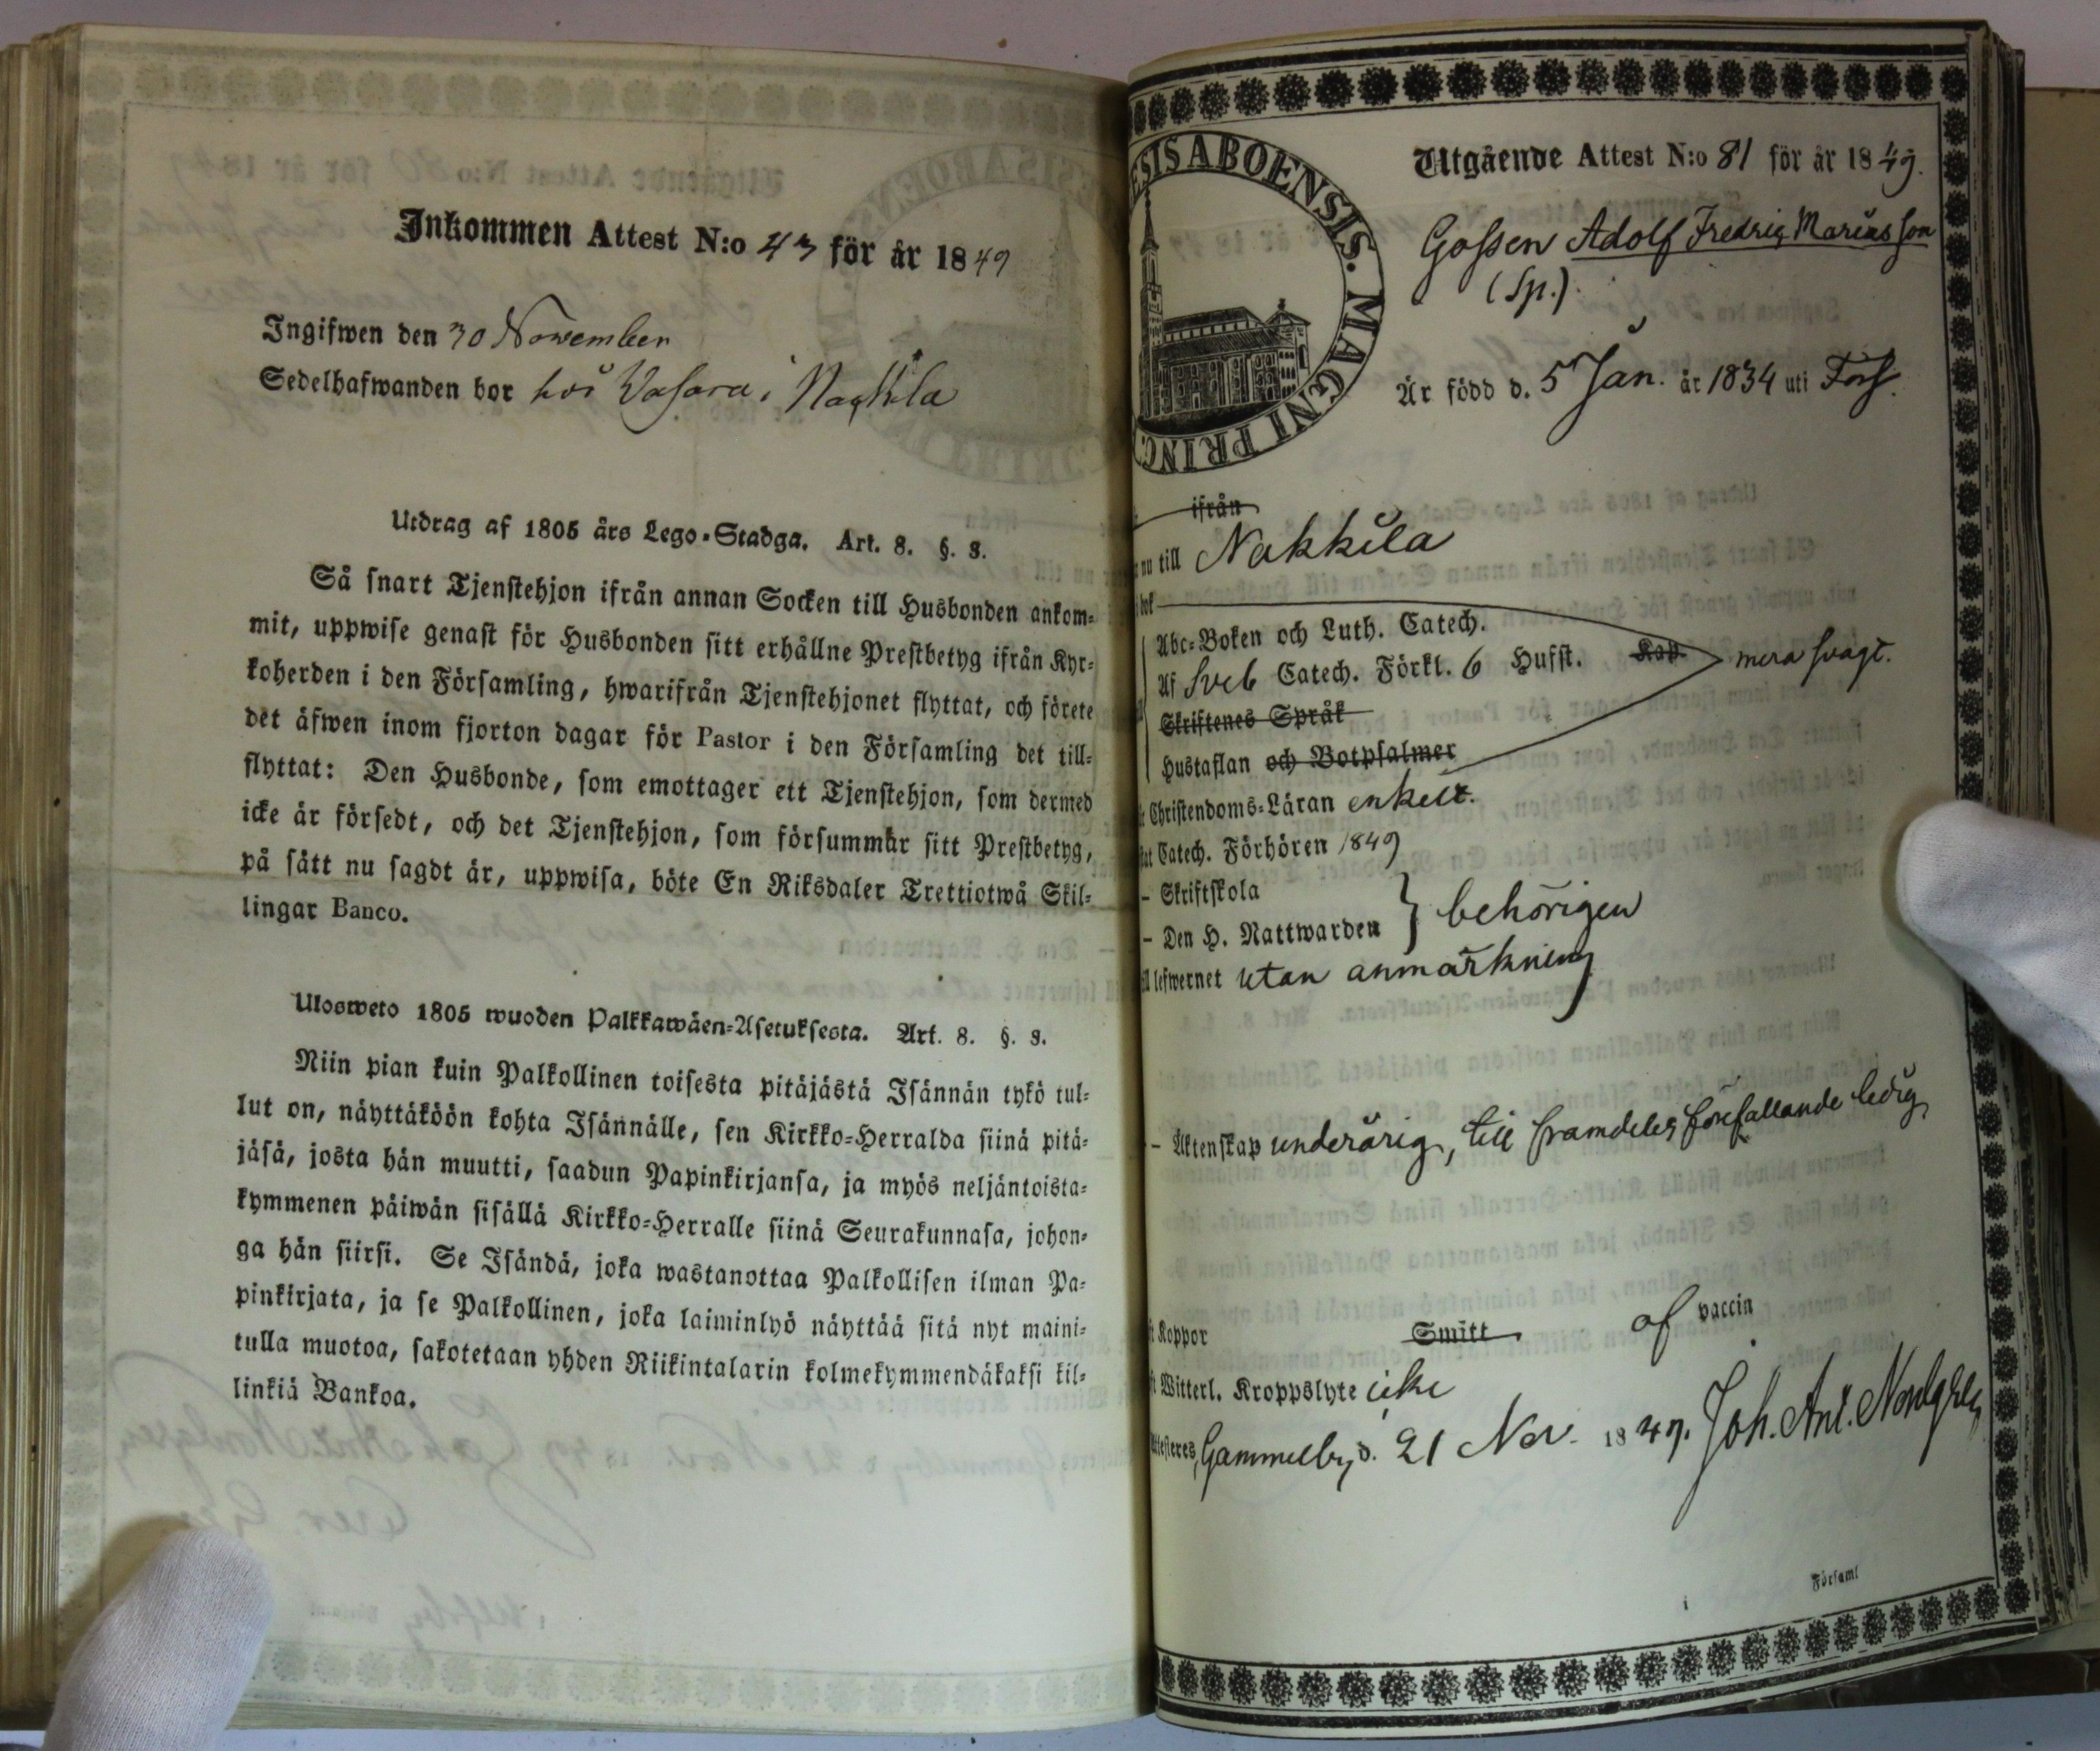 Inkommen Attest N:o 43 för år 1849
Ingifwen den 30 November
Sedelhafwanden bor hos Wasara i Nackila
Utdrag af 1805 års Lego-Stadga. Art. 8. §. 3.
Så snart Tjenstehjon ifrån annan Socken till Husbonden ankom-
mit, uppwise genast för Husbonden sitt erhållne Prestbetyg ifrån Kyr-
koherden i den Församling, hwarifrån Tjenstehjonet flyttat, och förete
det äfwen inom fjorton dagar för Pastor i den Församling det till-
flyttat: Den Husbonde, som emottager ett Tjenstehjon, som dermed
icke är försedt, och det Tjenstehjon, som försummar sitt Prestbetyg,
på sätt nu sagdt är, uppwisa, böte En Riksdaler Trettiotwå Skil-
lingar Banco.
Ulosweto 1805 wuoden Palkkawäen-Asetuksesta. Art. 8. §. 3.
Niin pian kuin Palkollinen toisesta pitäjästä Isännän tykö tul-
lut on, näyttäköön kohta Isännälle, sen Kirkko-Herralda siinä pitä-
jäsä, josta hän muutti, saadun Papinkirjansa, ja myös neljäntoista-
kymmenen päiwän sisällä Kirkko-Herralle siinä Seurakunnasa, johon-
ga hän siirsi. Se Isändä, joka wastanottaa Palkollisen ilman Pa-
pinkirjata, ja se Palkollinen, joka laiminlyö näyttää sitä nyt maini-
tulla muotoa, sakotetaan yhden Riikintalarin kolmekymmendäkaksi kil-
linkiä Bankoa.
ESIS ABOENSIS. MAGNI PRINC
Utgående Attest N:o 81 för år 1849.
Gossen Adolf Fredrig Mariasson
(Sp.)
Är född d. 5 Jan. år 1834 uti Förs.
ifrån
nu till Nakkila
bok
Abc-Boken och Luth. Catech.
Af Sveb Catech. Förkl. 6 Hufst. Kap mera svagt.
Skriftenes Språk
Hustaflan och Botpsalmer
Christendoms-Läran enkelt.
Catech. Förhören 1849
- Skriftskola
- Den H. Nattwarden } behörigen
lefwernet utan anmärkning
- Äktenskap underårig, till framdeles förefallande ledig
Koppor Smitt af vaccin
Witterl. Kroppslyte icke
Gammelby d. 21 Nov. 1849. Joh. Ant. Nordgren
Församl